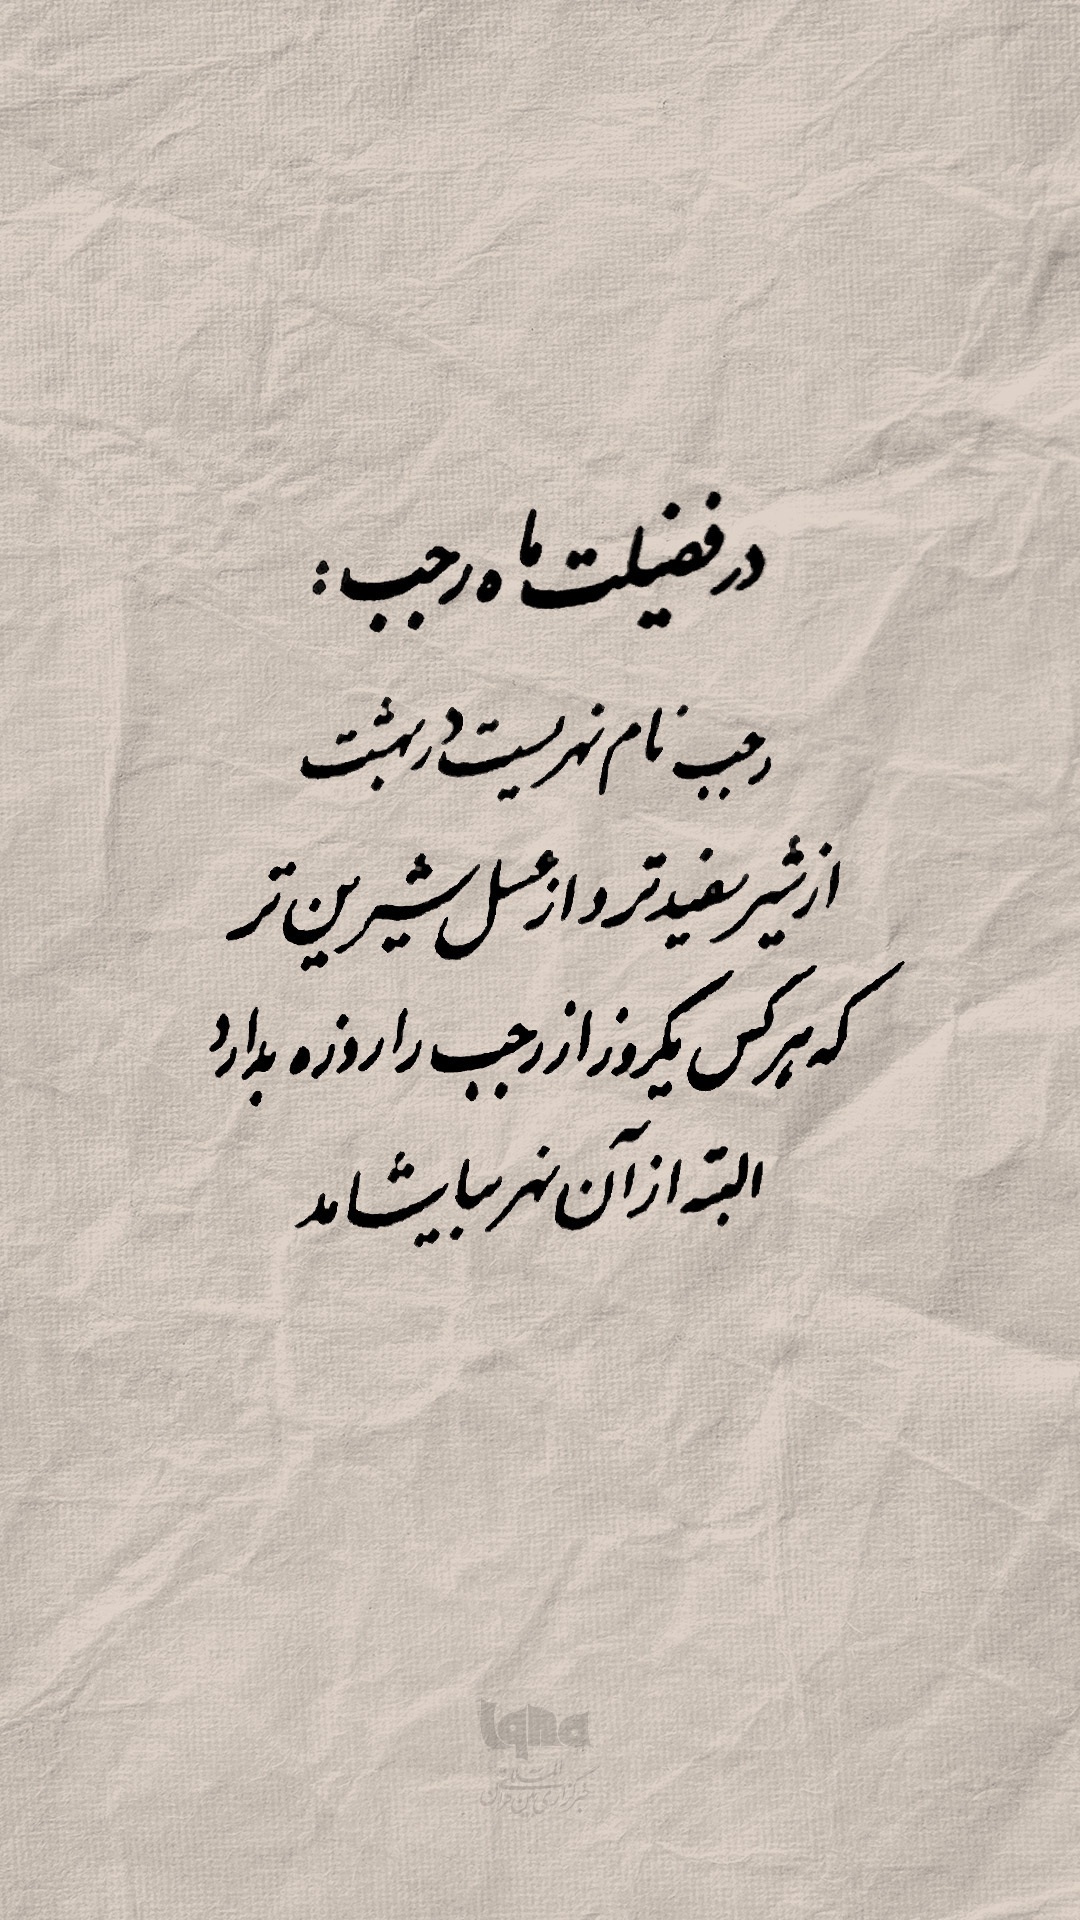 در فضیلت ماه رجب:
رجب نام نهریست در بهشت
از شیر سفیدتر و از عسل شیرین تر
که هرکس یکروز از رجب را روزه بدارد
البته از آن نهر بیاشامد
iqna
خبرگزاری بین المللی قرآن